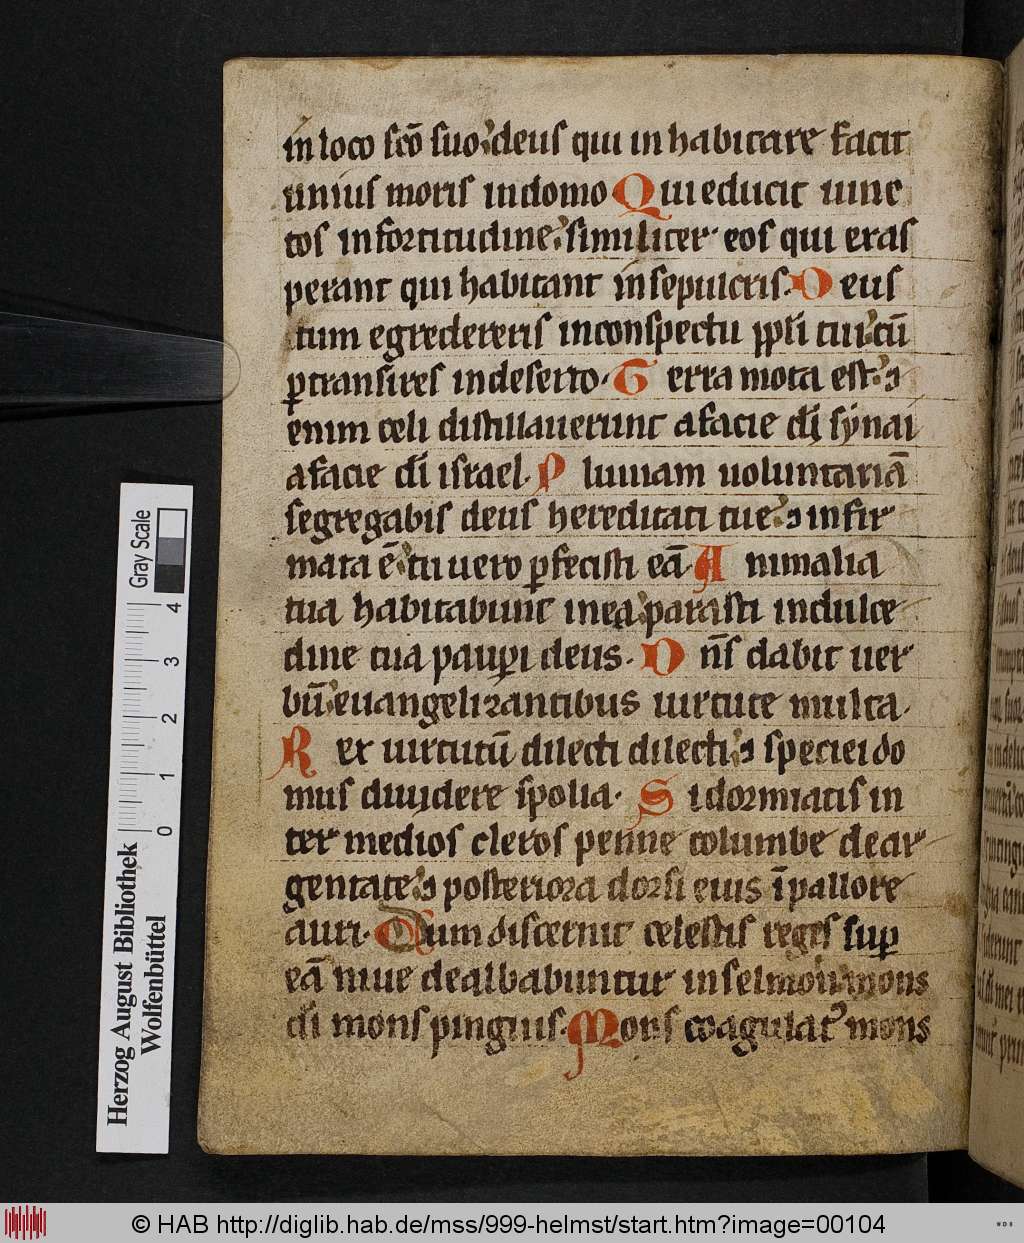 in loco sc̄o suo deus qui in habitare facit
unius moris in domo Qui educit vinc
tos in fortitudine similiter eos qui exas
perant qui habitant in sepulcris. Deus
cum egredereris in conspectu ppl̄i tui cū
ꝑtransires in deserto. Terra mota est
enim celi distillaverunt a facie dī synai
a facie dī israel. Pluuiam uoluntariā
segregabis deus hereditati tue ⁊ infir
mata ē tu uero ꝑfecisti eā. Animalia
tua habitabunt in ea parasti in dulce
dine tua pauꝑi deus. Dn̄s dabit uer
bū euangelizantibus uirtute multa.
Rex uirtutū dilecti dilecti ⁊ speciei do
mus diuidere spolia. Si dormiatis in
ter medios cleros penne columbe dear
gentate ⁊ posteriora dorsi eius ī pallore
auri. Dum discernit celestis reges suꝑ
eā niue dealbabuntur in selmon mons
dī mons pinguis. Mons coagulatꝰ mons
Herzog August Bibliothek
Wolfenbüttel
0 1 2 3 4
Gray Scale
© HAB http://diglib.hab.de/mss/999-helmst/start.htm?image=00104